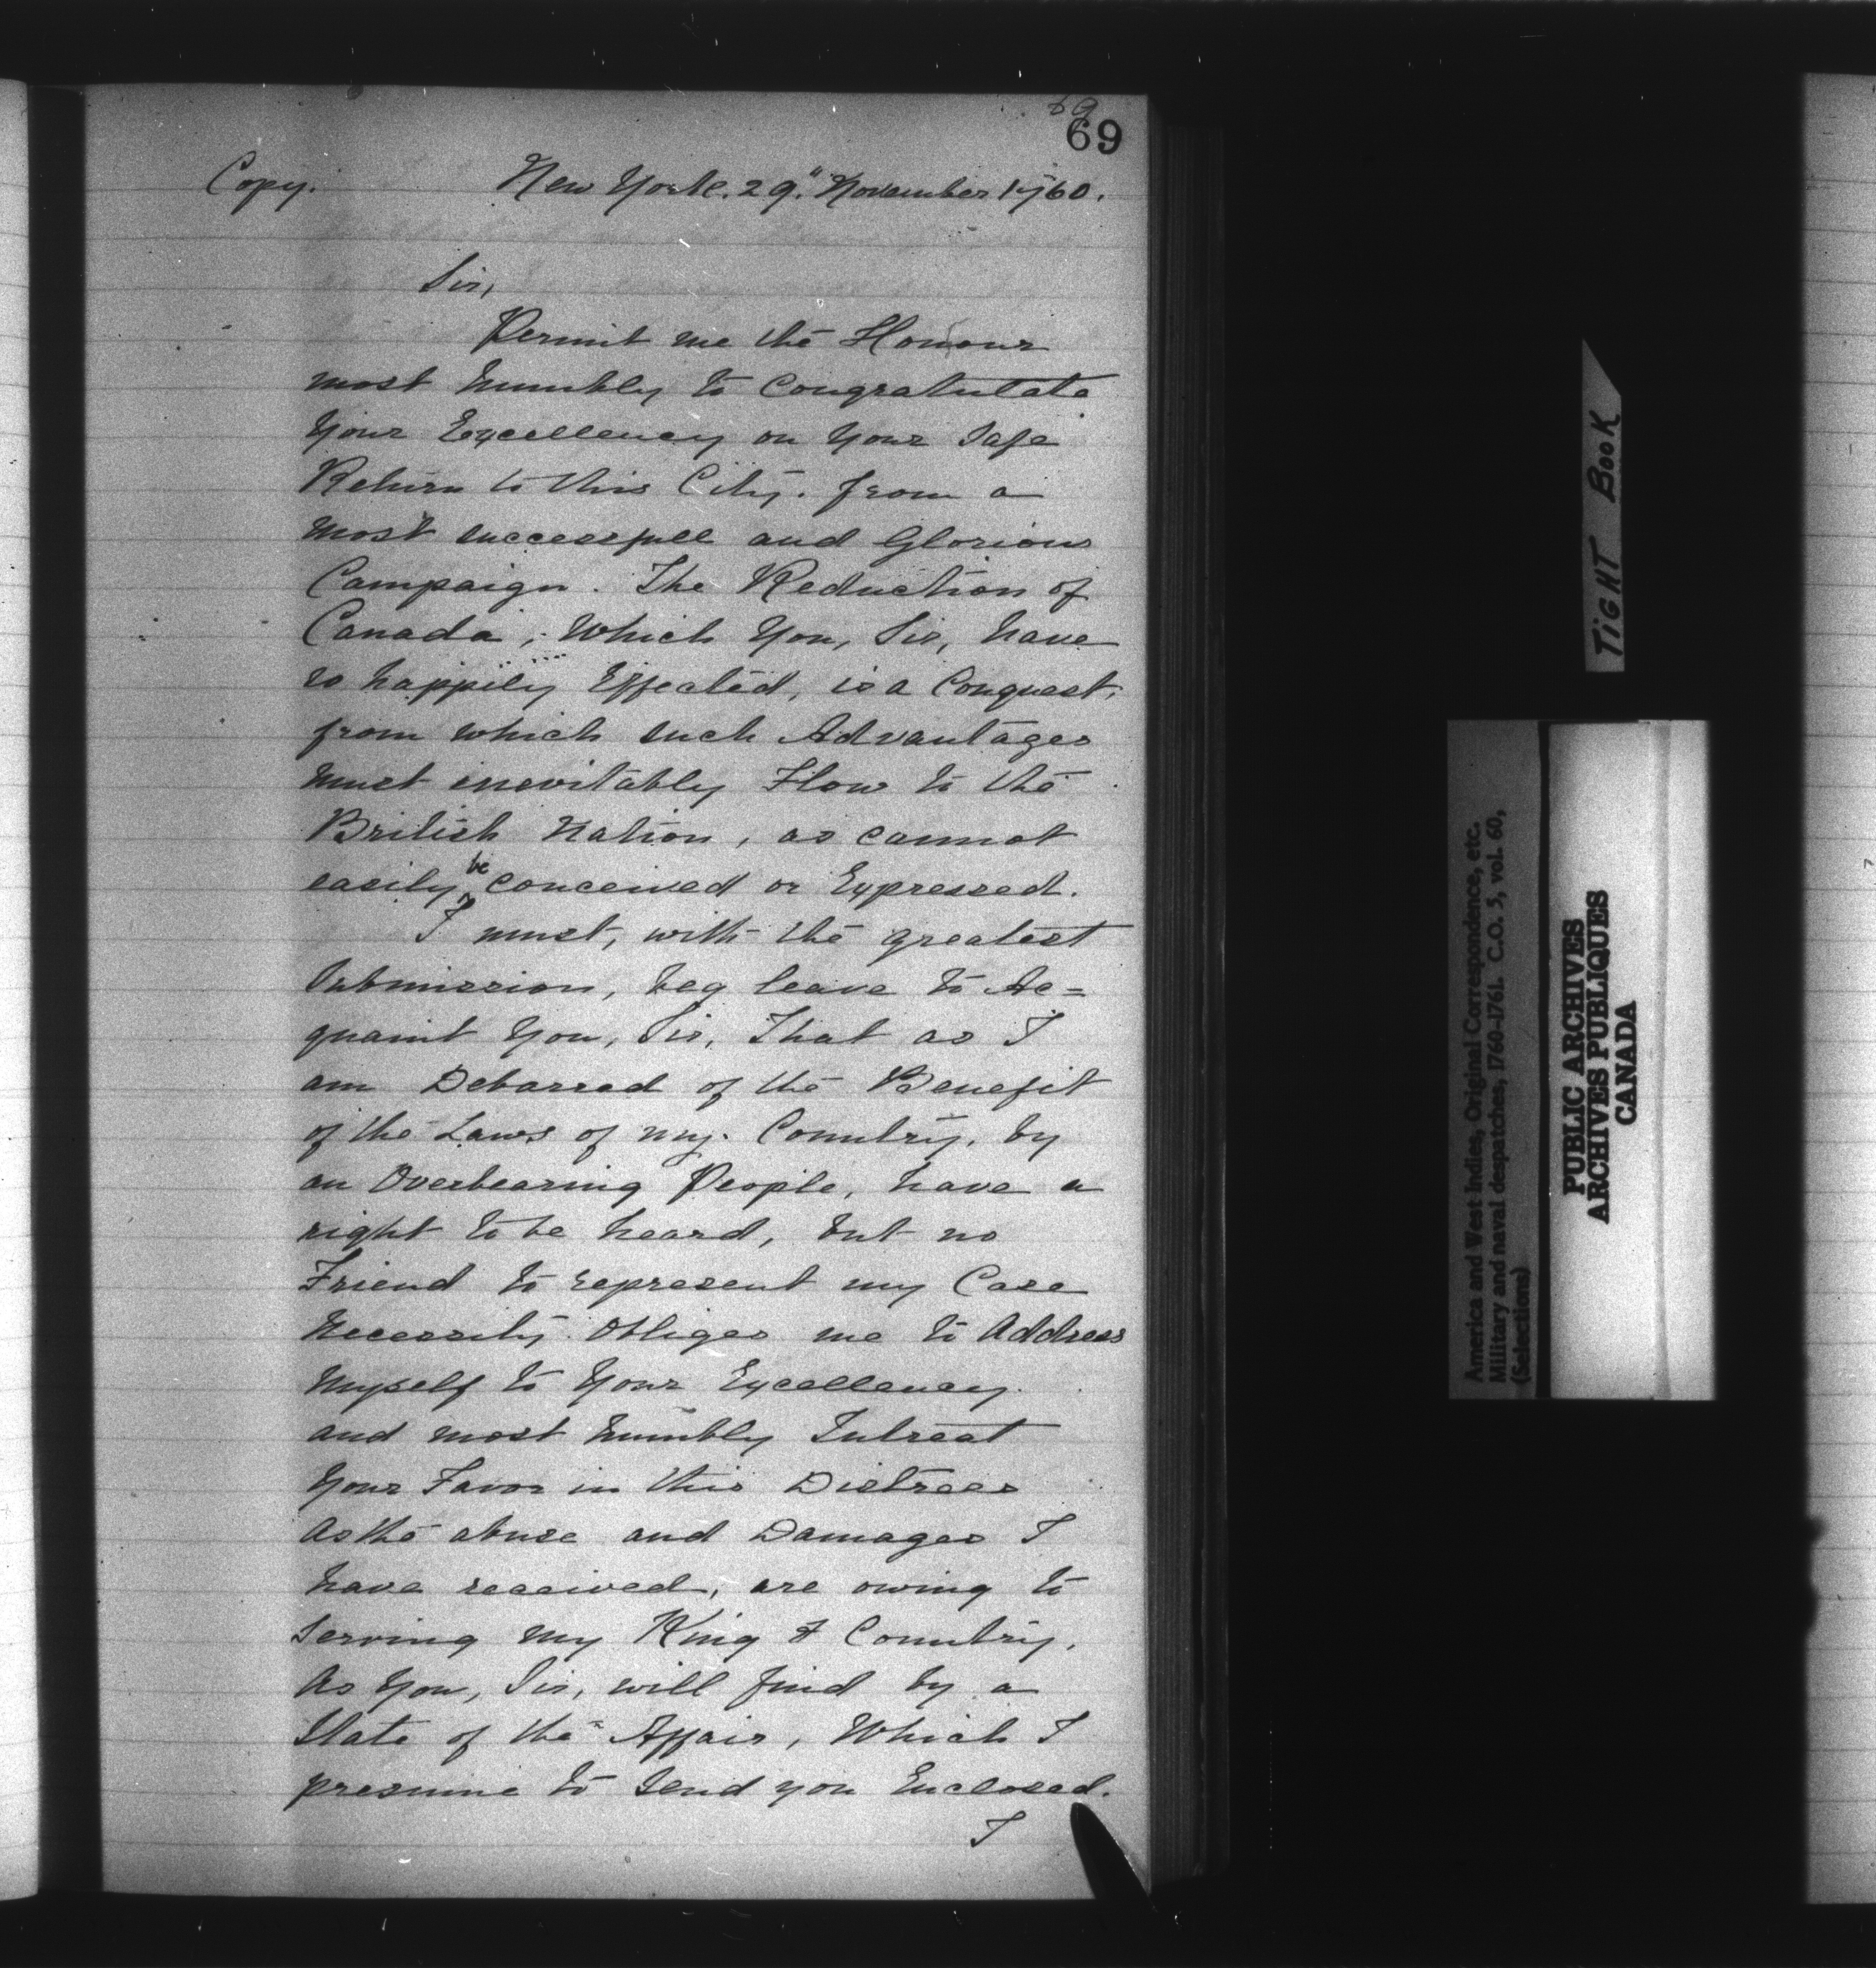 69
69
Copy. New York. 29." November 1760.
Sir,
Permit me the Honour
most humbly to Congratulate
Your Excellency on Your Safe
Return to this City. from a
most successfull and Glorious
Campaign. The Reduction of
Canada, Which You, Sir, have
so happily Effected, is a Conquest,
from which such Advantages
must inevitably Flow to the
British Nation, as cannot
easily be conceived or Expressed.
I must, with the greatest
Submission, beg leave to Ac=
quaint You, Sir, That as I
am Debarred of the Benefit
of the Laws of my Country, by
an Overbearing People, have a
right to be heard, but no
Friend to represent my Case
Necessity Obliges me to Address
Myself to Your Excellency
and most humbly Intreat
Your Favor in this Distress
As the abuse and Damages I
have received, are owing to
Serving my King & Country,
As You, Sir, will find by a
State of the Affair, Which I
presume to Send you Enclosed.
I
TIGHT BOOK
America and West Indies, Original Correspondence, etc.
Military and naval despatches, 1760-1761. C.O. 5, vol. 60,
(Selections)
PUBLIC ARCHIVES
ARCHIVES PUBLIQUES
CANADA